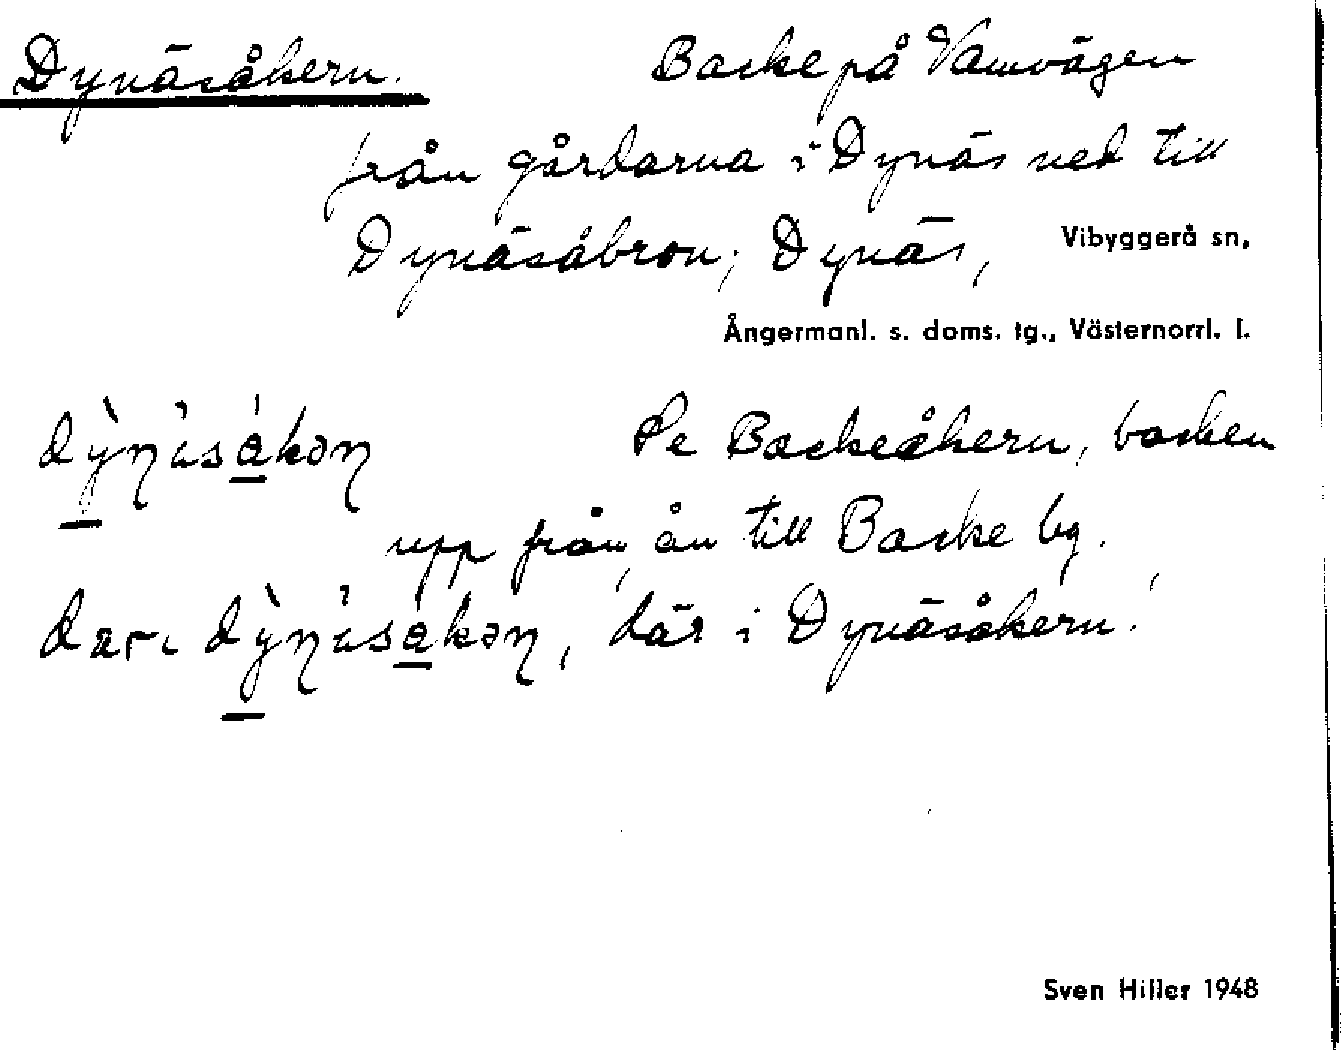 Dynäsåkern. Backe på Vamvägen
från gårdarna i Dynäs ned till
Dynäsåbron; Dynäs, Vibyggerå sn,
Ångermanl. s. doms. tg., Västernorrl. l.
Se Backeåkern, backen
upp från ån till Backe by.
där i Dynäsåkern'
Sven Hiller 1948